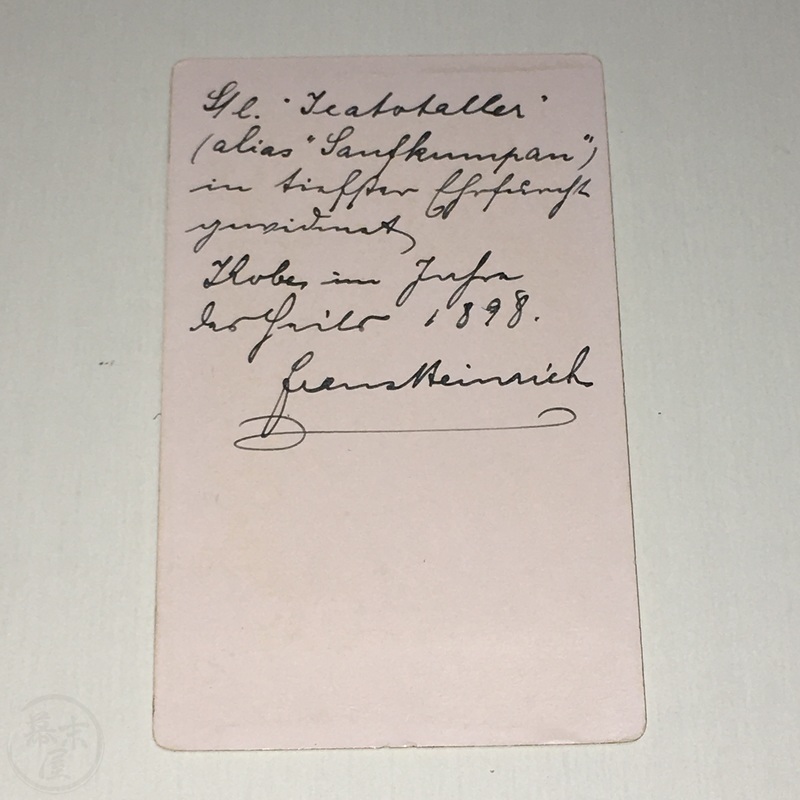 S/l. "Teatotaller"
(alias "Saufkumpan")
in tiefster Ehrfurcht
gewidmet
Kobe, im Jahre
des Heils 1898.
Heinrich
幕末屋